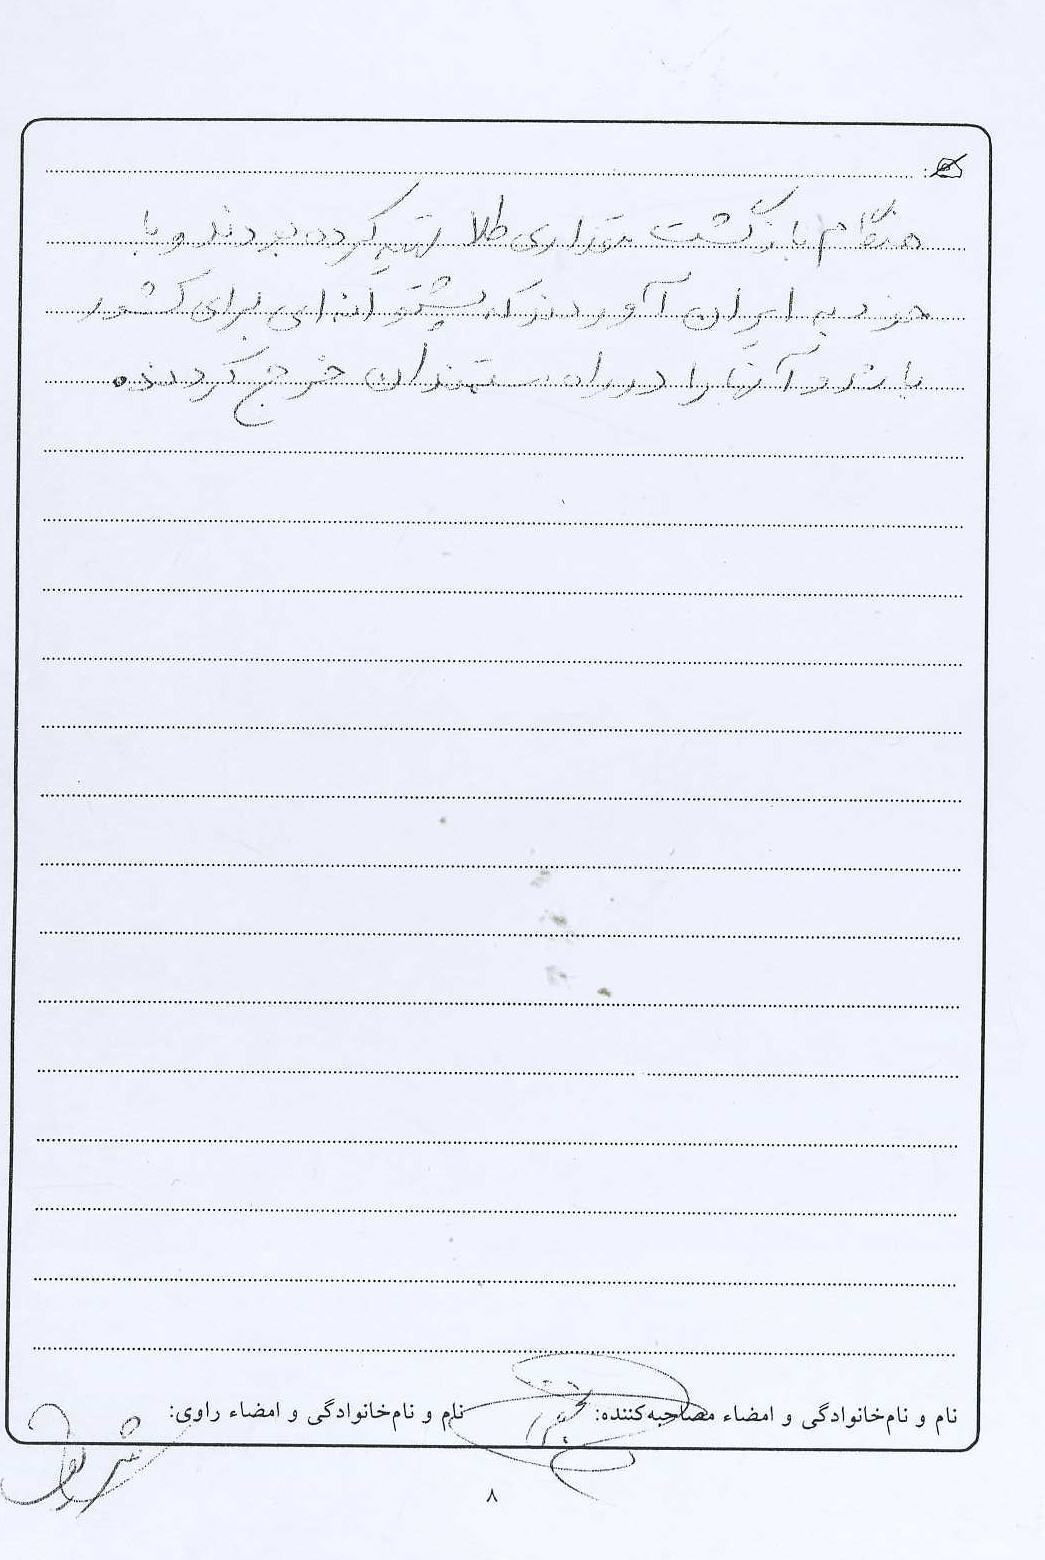 هنگام بازگشت مقداری طلا تهیه کرده بودند و با
خود به ایران آوردند که پشتوانه ای برای کشور
باشد و آنها را در راه مستمندان خرج کردند.
نام و نام‌خانوادگی و امضاء مصاحبه‌کننده:
نام و نام‌خانوادگی و امضاء راوی:
۸